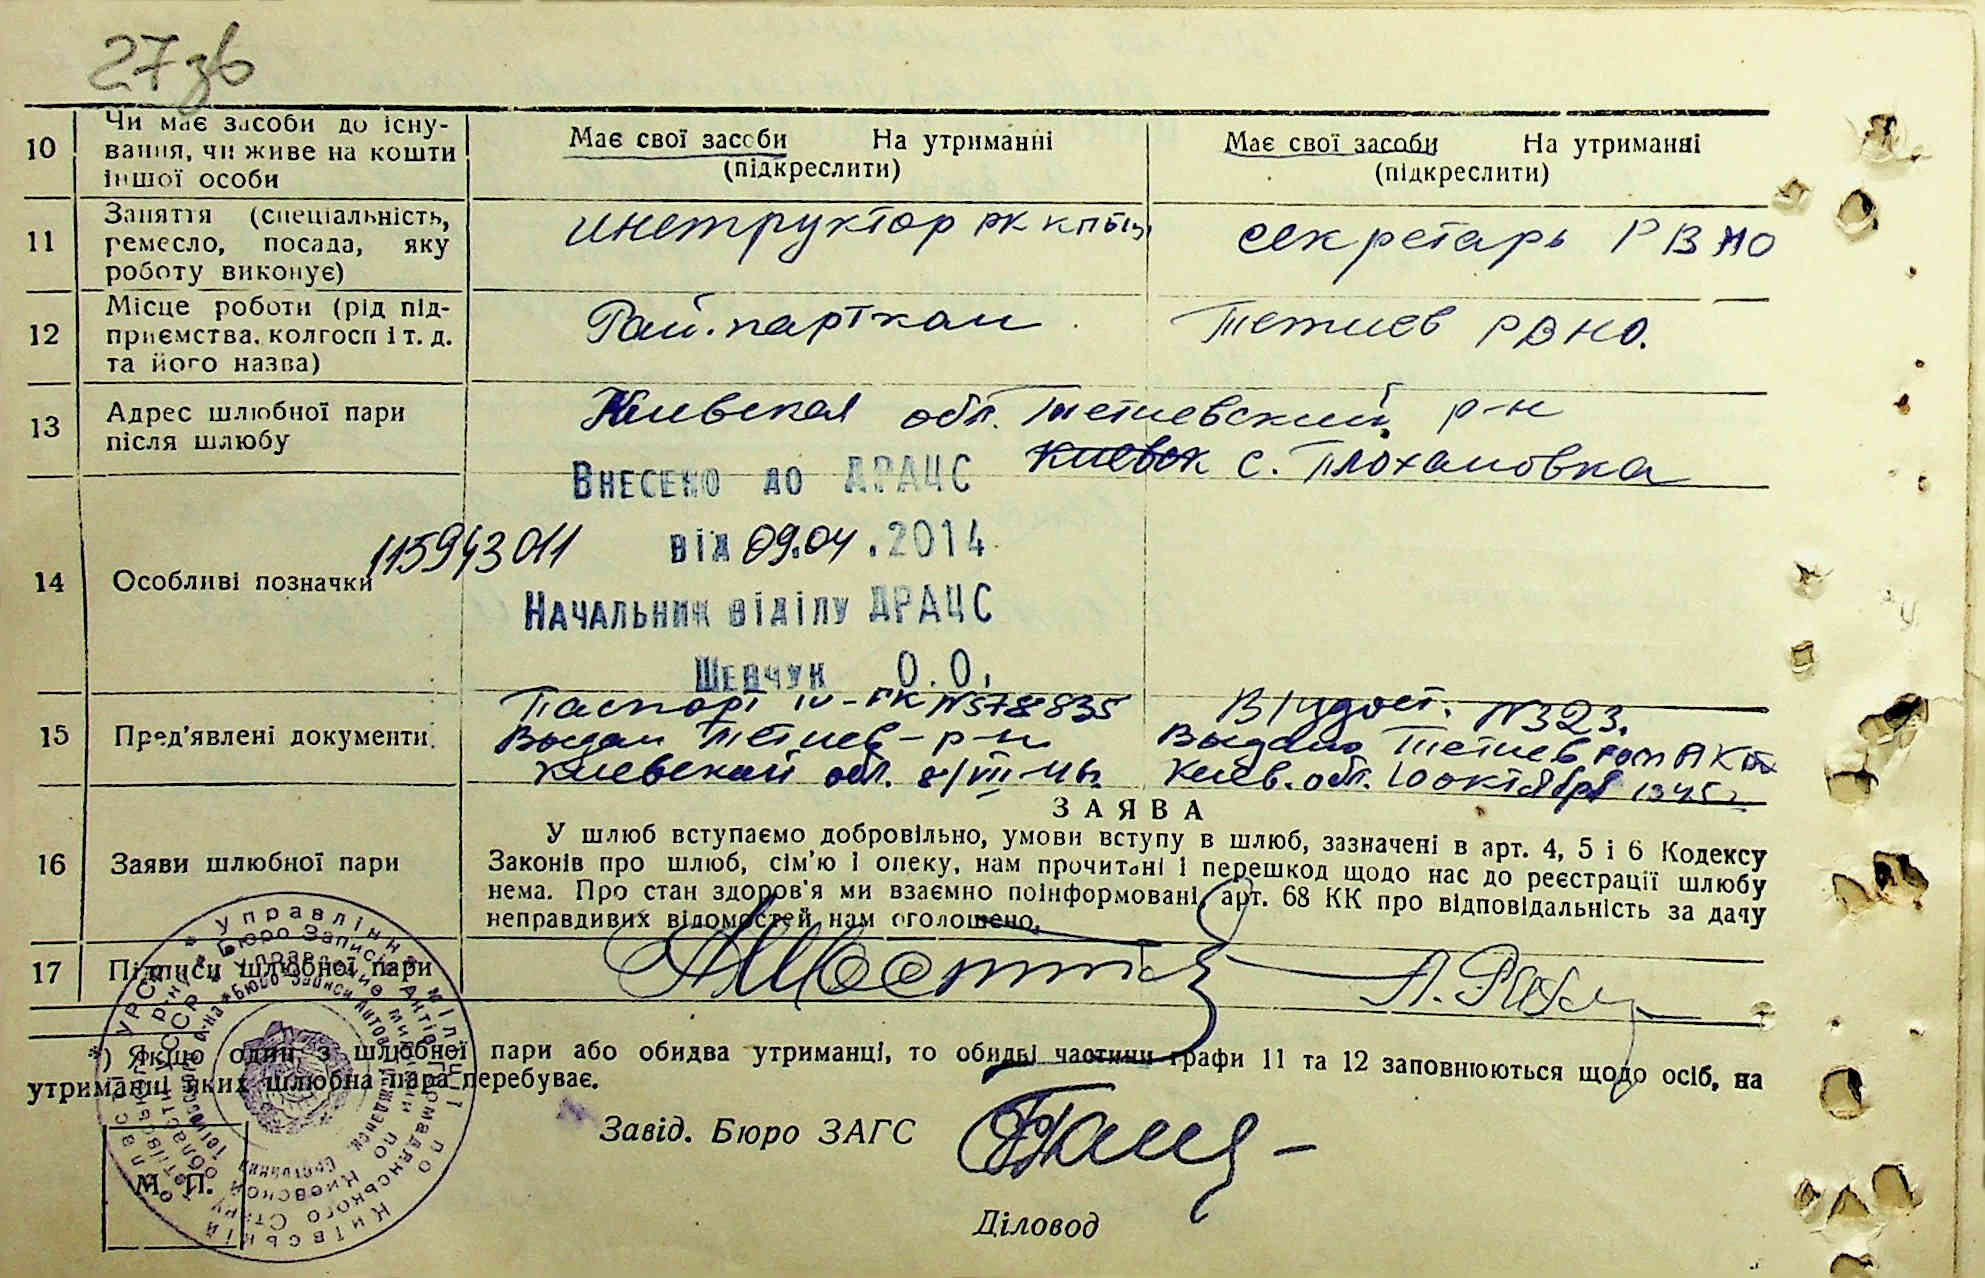 27 зв
10 Чи має засоби до існу-
вання, чи живе на кошти
іншої особи
Має свої засоби На утриманні
(підкреслити)
Має свої засоби На утриманні
(підкреслити)
11 Заняття (спеціальність,
ремесло, посада, яку
роботу виконує)
инструктор РК КПбУ
секретарь РВНО
12 Місце роботи (рід під-
приємства, колгосп і т. д.
та його назва)
Рай.партком
Тетиев РВНО.
13 Адрес шлюбної пари
після шлюбу
Киевская обл. Тетиевский р-н
с. Плохановка
14 Особливі позначки
115943011
Внесено до ДРАЦС
від 09.04.2014
Начальник відділу ДРАЦС
Шевчук О.О.
15 Пред'явлені документи.
Паспорт IV-ГК N578835
Выдан Тетиев-р-н
Киевской обл. 8/VII-46г.
В/удост. N323.
Выдано Тетиев
Киев.обл. 10 октября 1945г.
16 Заяви шлюбної пари
ЗАЯВА
У шлюб вступаємо добровільно, умови вступу в шлюб, зазначені в арт. 4, 5 і 6 Кодексу
Законів про шлюб, сім'ю і опеку, нам прочитані і перешкод щодо нас до реєстрації шлюбу
нема. Про стан здоров'я ми взаємно поінформовані, арт. 68 КК про відповідальність за дачу
неправдивих відомостей нам оголошено.
17 Підписи шлюбної пари
*) Якщо один з шлюбної пари або обидва утриманці, то обидві частини графи 11 та 12 заповнюються щодо осіб, на
утриманні яких шлюбна пара перебуває.
Завід. Бюро ЗАГС
М. П.
Діловод